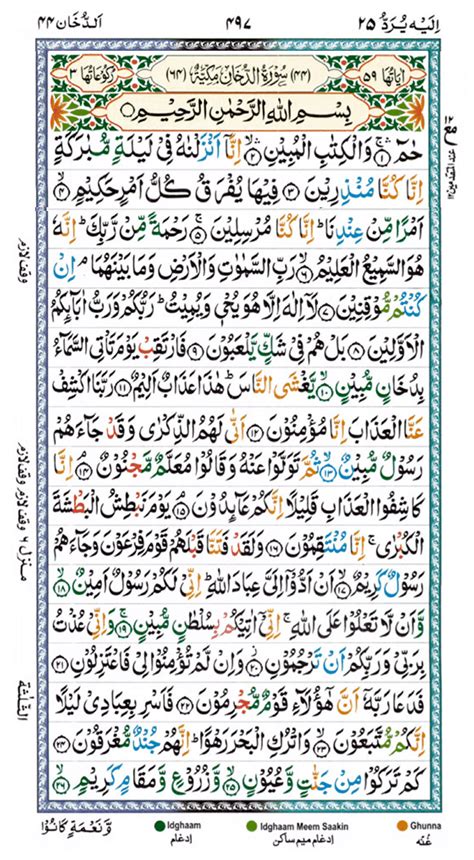 اِلَيْهِ يُرَدُّ ٢٥ ٤٩٧ اَلدُّخَان ٤٤
اٰيَاتُهَا ٥٩ (٤٤) سُوْرَةُ الدُّخَانِ مَكِّيَّةٌ (٦٤) رُكُوْعَاتُهَا ٣
بِسْمِ اللّٰهِ الرَّحْمٰنِ الرَّحِيْمِ
حٰمٓ ١ وَالْكِتٰبِ الْمُبِيْنِ ٢ اِنَّاۤ اَنْزَلْنٰهُ فِيْ لَيْلَةٍ مُّبٰرَكَةٍ
اِنَّا كُنَّا مُنْذِرِيْنَ ٣ فِيْهَا يُفْرَقُ كُلُّ اَمْرٍ حَكِيْمٍ ٤
اَمْرًا مِّنْ عِنْدِنَا ؕ اِنَّا كُنَّا مُرْسِلِيْنَ ٥ رَحْمَةً مِّنْ رَّبِّكَ ؕ اِنَّهٗ
هُوَ السَّمِيْعُ الْعَلِيْمُ ٦ رَبِّ السَّمٰوٰتِ وَالْاَرْضِ وَمَا بَيْنَهُمَا ۘ اِنْ
كُنْتُمْ مُّوْقِنِيْنَ ٧ لَاۤ اِلٰهَ اِلَّا هُوَ يُحْيٖ وَيُمِيْتُ ؕ رَبُّكُمْ وَرَبُّ اٰبَآئِكُمُ
الْاَوَّلِيْنَ ٨ بَلْ هُمْ فِيْ شَكٍّ يَّلْعَبُوْنَ ٩ فَارْتَقِبْ يَوْمَ تَاْتِي السَّمَآءُ
بِدُخَانٍ مُّبِيْنٍ ١٠ يَّغْشَى النَّاسَ ؕ هٰذَا عَذَابٌ اَلِيْمٌ ١١ رَبَّنَا اكْشِفْ
عَنَّا الْعَذَابَ اِنَّا مُؤْمِنُوْنَ ١٢ اَنّٰى لَهُمُ الذِّكْرٰى وَقَدْ جَآءَهُمْ
رَسُوْلٌ مُّبِيْنٌ ١٣ ثُمَّ تَوَلَّوْا عَنْهُ وَقَالُوْا مُعَلَّمٌ مَّجْنُوْنٌ ١٤ اِنَّا
كَاشِفُوا الْعَذَابِ قَلِيْلًا اِنَّكُمْ عَآئِدُوْنَ ١٥ يَوْمَ نَبْطِشُ الْبَطْشَةَ
الْكُبْرٰى ۚ اِنَّا مُنْتَقِمُوْنَ ١٦ وَلَقَدْ فَتَنَّا قَبْلَهُمْ قَوْمَ فِرْعَوْنَ وَجَآءَهُمْ
رَسُوْلٌ كَرِيْمٌ ١٧ اَنْ اَدُّوْۤا اِلَيَّ عِبَادَ اللّٰهِ ؕ اِنِّيْ لَكُمْ رَسُوْلٌ اَمِيْنٌ ١٨
وَّاَنْ لَّا تَعْلُوْا عَلَى اللّٰهِ ۚ اِنِّيْۤ اٰتِيْكُمْ بِسُلْطٰنٍ مُّبِيْنٍ ١٩ وَاِنِّيْ عُذْتُ
بِرَبِّيْ وَرَبِّكُمْ اَنْ تَرْجُمُوْنِ ٢٠ وَاِنْ لَّمْ تُؤْمِنُوْا لِيْ فَاعْتَزِلُوْنِ ٢١
فَدَعَا رَبَّهٗۤ اَنَّ هٰۤؤُلَآءِ قَوْمٌ مُّجْرِمُوْنَ ٢٢ فَاَسْرِ بِعِبَادِيْ لَيْلًا
اِنَّكُمْ مُّتَّبَعُوْنَ ٢٣ وَاتْرُكِ الْبَحْرَ رَهْوًا ؕ اِنَّهُمْ جُنْدٌ مُّغْرَقُوْنَ ٢٤
كَمْ تَرَكُوْا مِنْ جَنّٰتٍ وَّعُيُوْنٍ ٢٥ وَّزُرُوْعٍ وَّمَقَامٍ كَرِيْمٍ ٢٦
وقف لازم
وقف لازم وقف لازم
منزل ٦
الثلٰثة
وَّنَعْمَةٍ كَانُوْا
Idghaam
ادغام
Idghaam Meem Saakin
ادغام میم ساکن
Ghunna
غُنّه